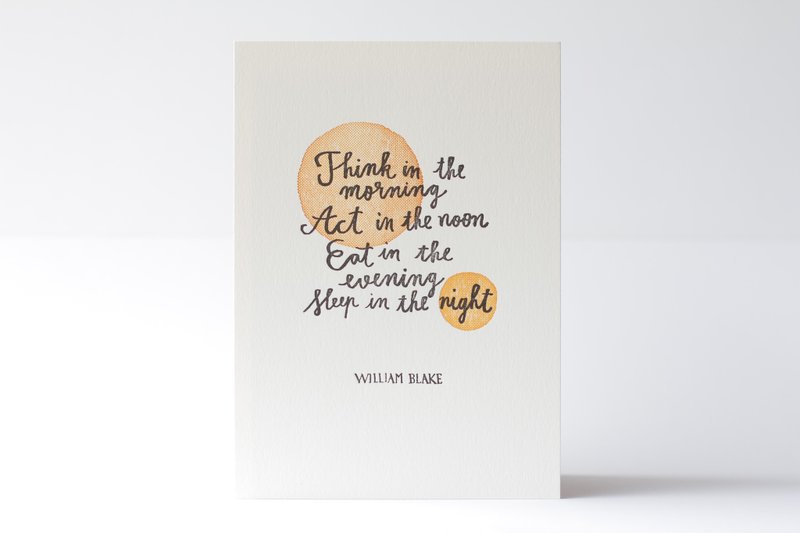 Think in the
morning
Act in the noon
Eat in the
evening
Sleep in the night
WILLIAM BLAKE